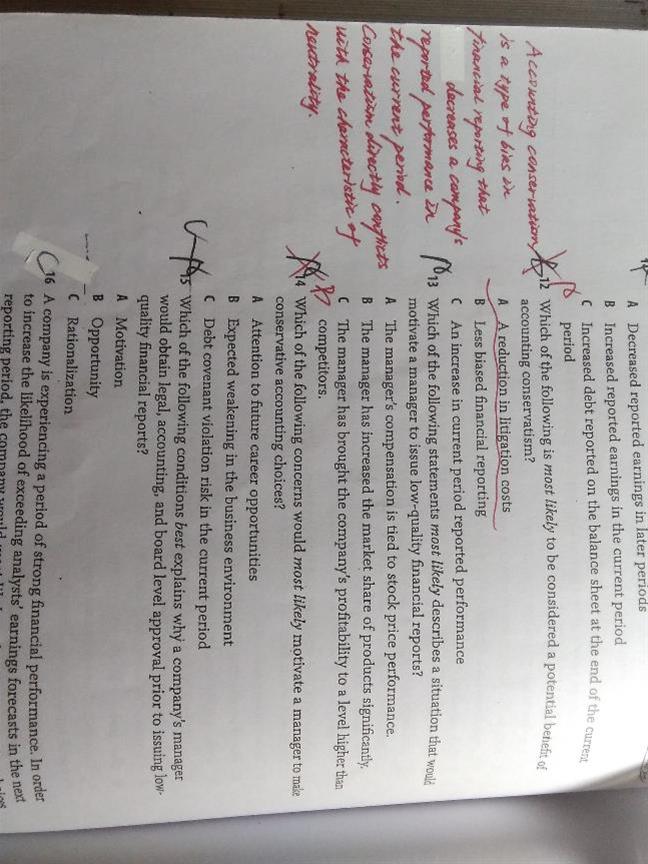 A Decreased reported earnings in later periods
B Increased reported earnings in the current period
C Increased debt reported on the balance sheet at the end of the current
period
12 Which of the following is most likely to be considered a potential benefit of
accounting conservatism?
A A reduction in litigation costs
B Less biased financial reporting
C An increase in current period reported performance
13 Which of the following statements most likely describes a situation that would
motivate a manager to issue low-quality financial reports?
A The manager's compensation is tied to stock price performance.
B The manager has increased the market share of products significantly.
C The manager has brought the company's profitability to a level higher than
competitors.
14 Which of the following concerns would most likely motivate a manager to make
conservative accounting choices?
A Attention to future career opportunities
B Expected weakening in the business environment
C Debt covenant violation risk in the current period
15 Which of the following conditions best explains why a company's manager
would obtain legal, accounting, and board level approval prior to issuing low-
quality financial reports?
A Motivation
B Opportunity
C Rationalization
16 A company is experiencing a period of strong financial performance. In order
to increase the likelihood of exceeding analysts' earnings forecasts in the next
reporting period, the company would
Accounting conservatism
is a type of bias in
financial reporting that
decreases a company's
reported performance in
the current period.
Conservatism directly conflicts
with the characteristic of
neutrality.